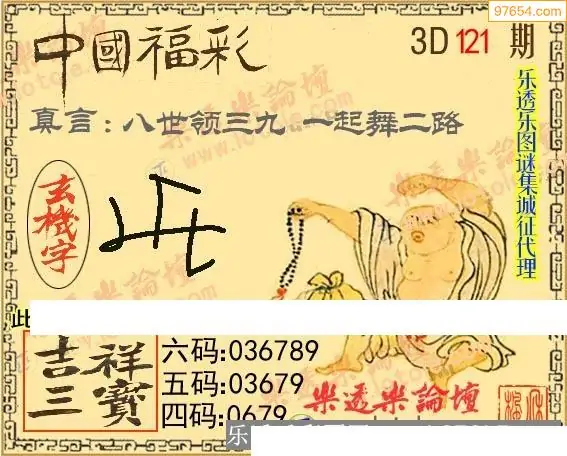 97654.com
中國福彩
3D 121 期
真言:八世领三九 一起舞二路
乐透乐图谜集诚征代理
玄機字
此
吉祥三寶
六码:036789
五码:03679
四码:0679
樂透樂論壇
乐